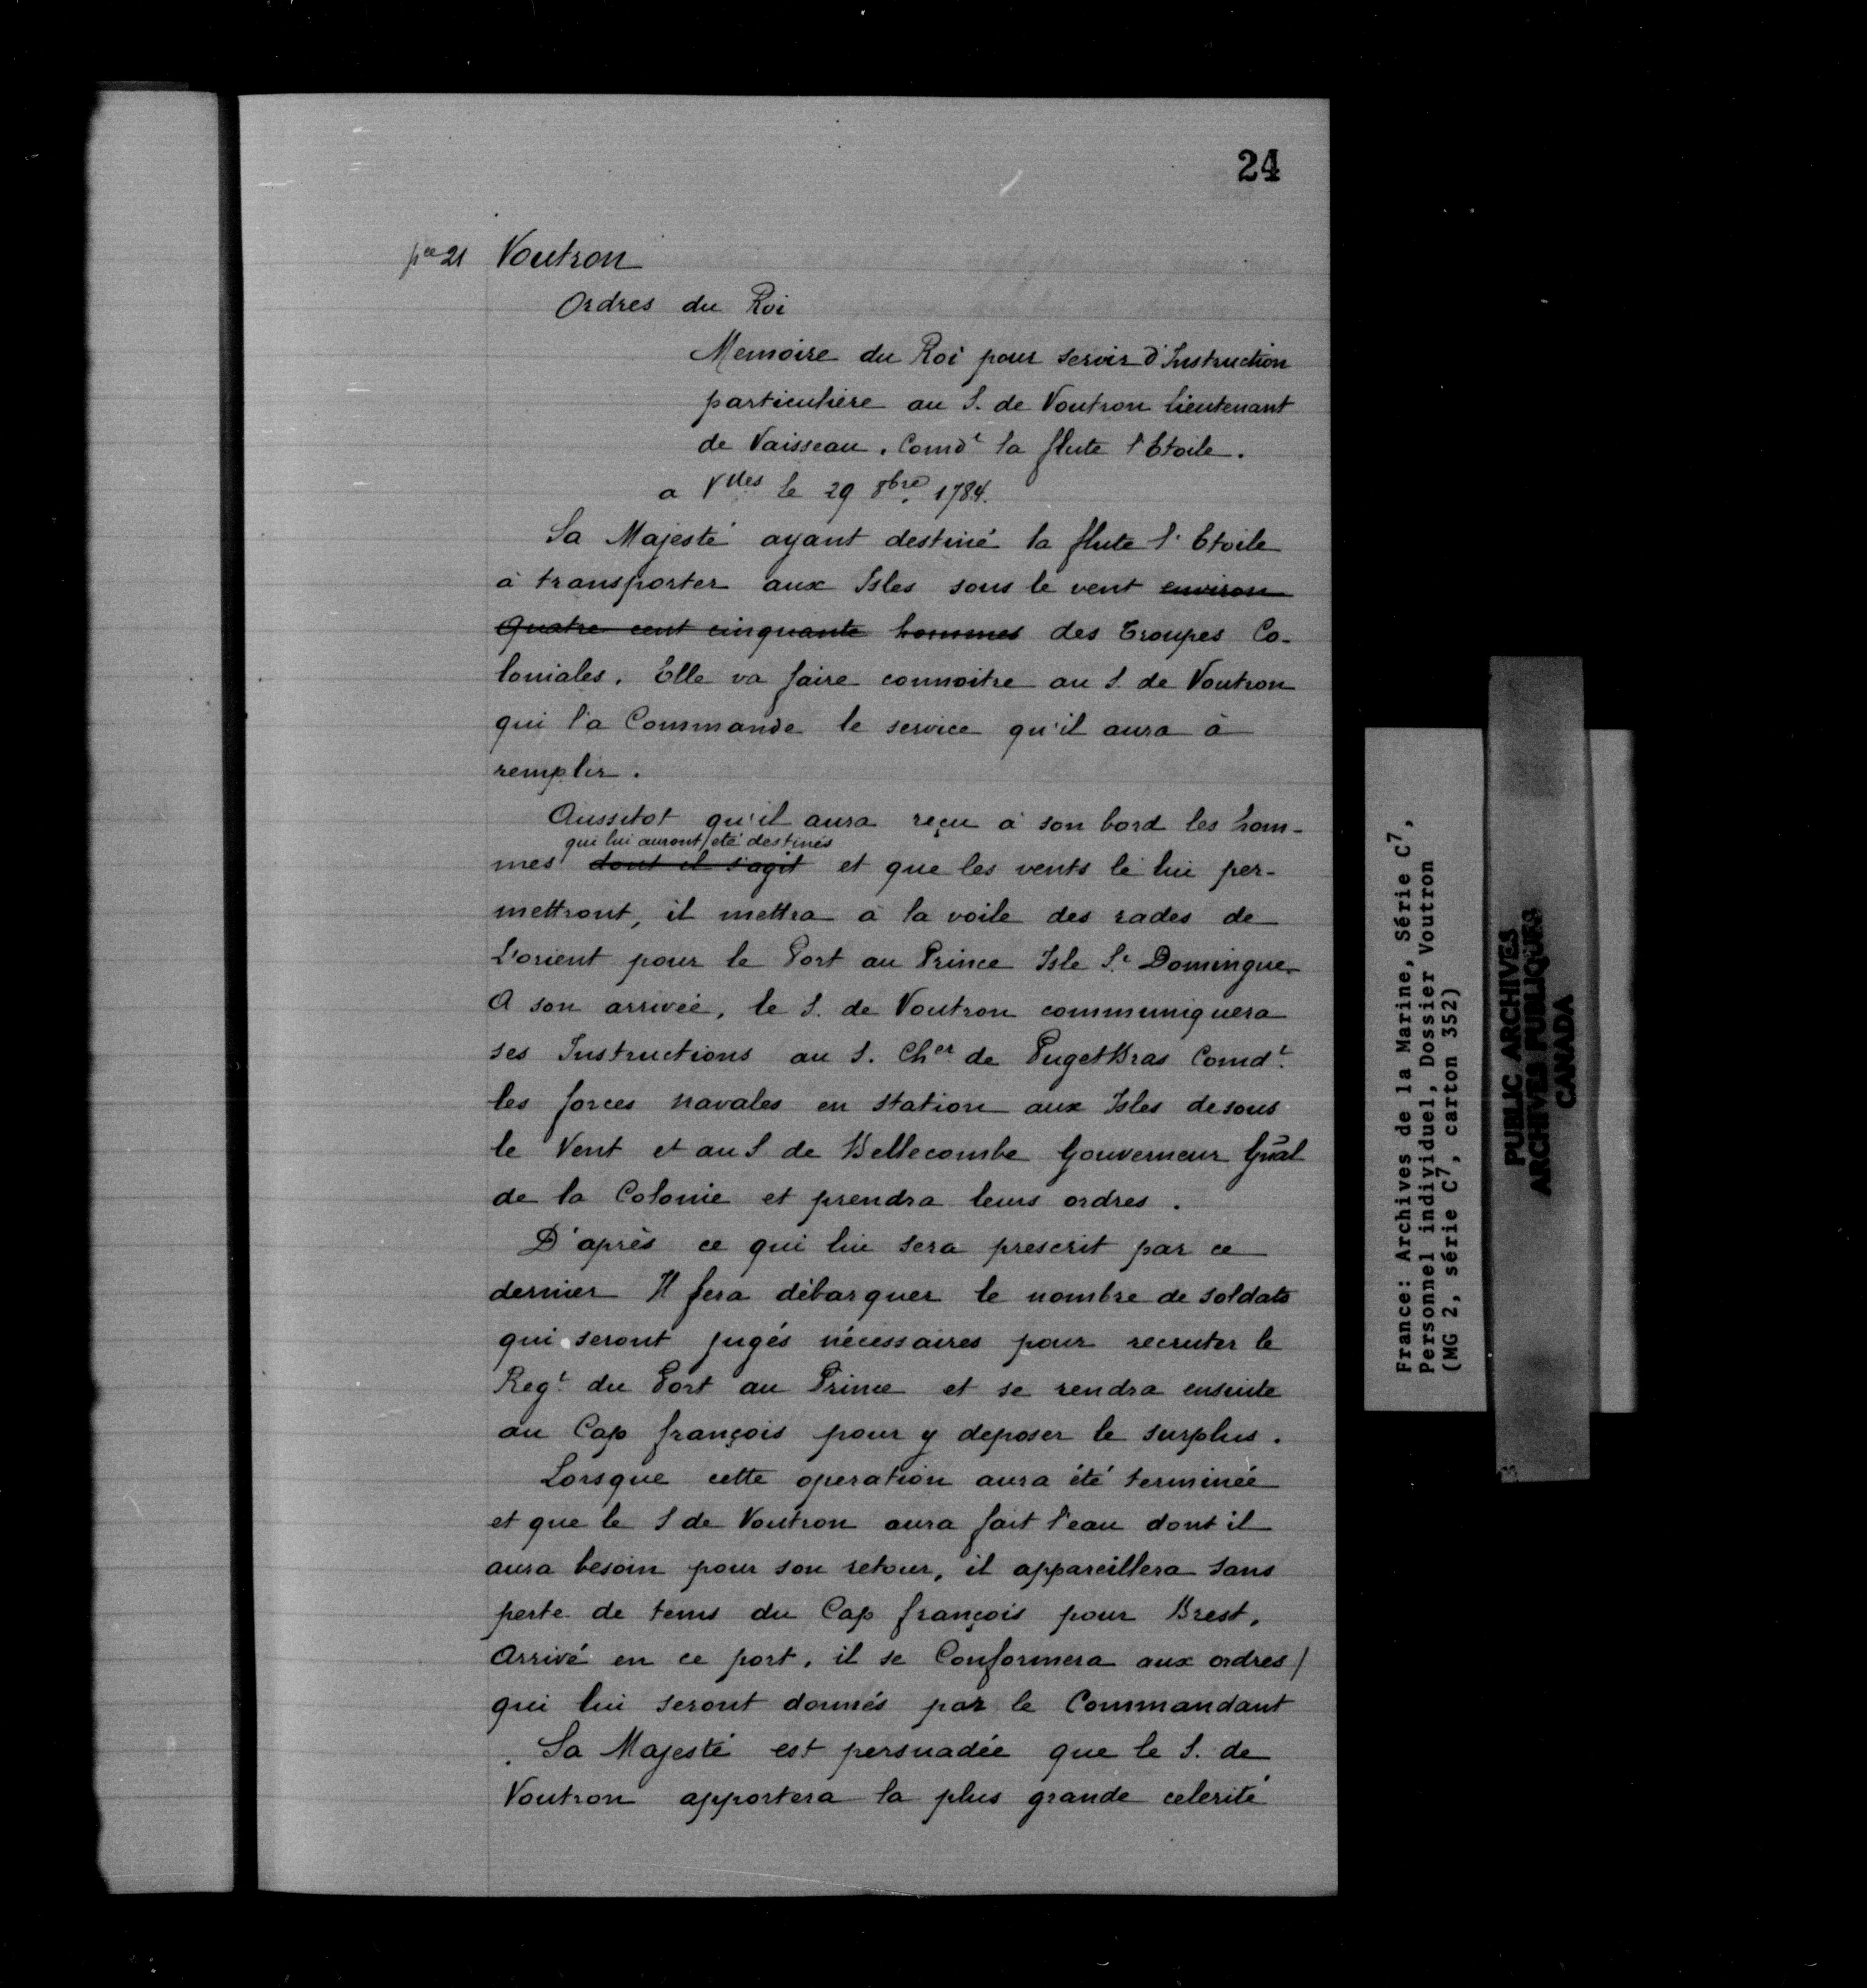 24
pce 21 Voutron
Ordres du Roi
Memoire du Roi pour servir d'Instruction
particuliere au S. de Voutron lieutenant
de Vaisseau, Comdt la flute l'Etoile.
a Vlles le 29 8bre 1784.
Sa Majesté ayant destiné la flute l'Etoile
à transporter aux Isles sous le vent environ
quatre cent cinquante hommes des Troupes Co-
loniales. Elle va faire connoitre au S. de Voutron
qui l'a Commande le service qu'il aura à
remplir.
Aussitot qu'il aura reçu à son bord les hom-
qui lui auront été destinés
mes dont il s'agit et que les vents le lui per-
mettront, il mettra à la voile des rades de
L'orient pour le Port au Prince Isle St Domingue.
A son arrivée, le S. de Voutron communiquera
ses Instructions au S. Cher de PugetBras Comdt
les forces navales en station aux Isles desous
le Vent et au S de Bellecombe Gouverneur Gñal
de la Colonie et prendra leurs ordres.
D'après ce qui lui sera prescrit par ce
dernier Il fera débarquer le nombre de soldats
qui seront jugés nécessaires pour recruter le
Regt du Port au Prince et se rendra ensuite
au Cap françois pour y deposer le surplus.
Lorsque cette operation aura été terminée
et que le S de Voutron aura fait l'eau dont il
aura besoin pour son retour, il appareillera sans
perte de tems du Cap françois pour Brest,
Arrivé en ce port, il se Conformera aux ordres/
qui lui seront donnés par le Commandant
. Sa Majesté est persuadée que le S. de
Voutron apportera la plus grande celerité
France: Archives de la Marine, Série C7,
Personnel individuel, Dossier Voutron
(MG 2, série C7, carton 352)
PUBLIC ARCHIVES
ARCHIVES PUBLIQUES
CANADA